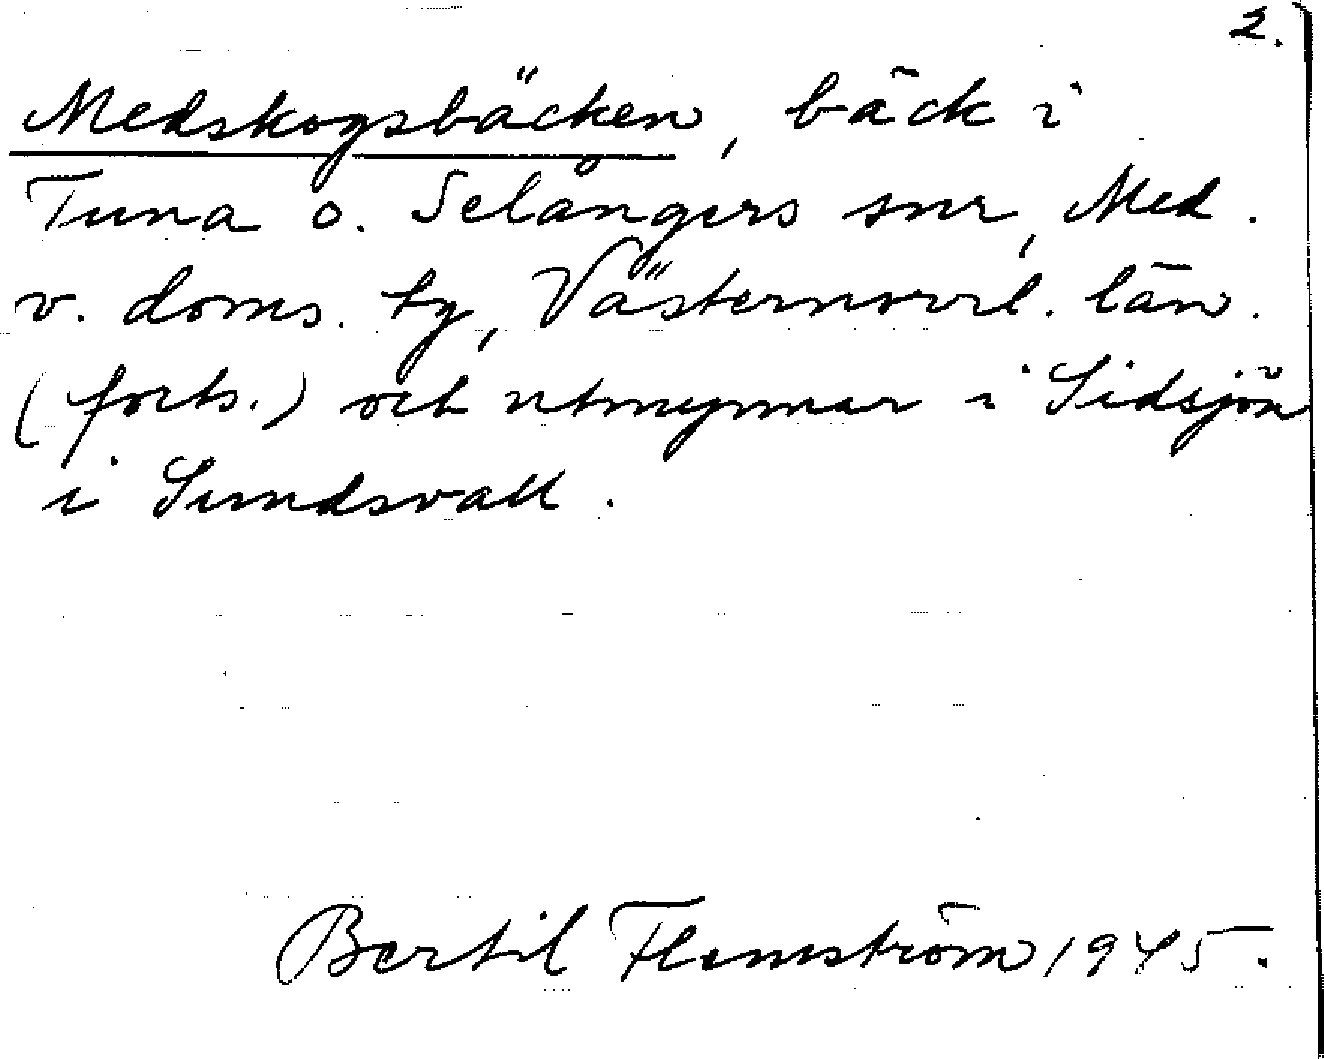 2.
Medskogsbäcken, bäck i
Tuna o. Selångers snr, Med.
v. doms. tg, Västernorrl. län.
(forts.) och utmynnar i Sidsjön
i Sundsvall.
Bertil Flemström 1945.